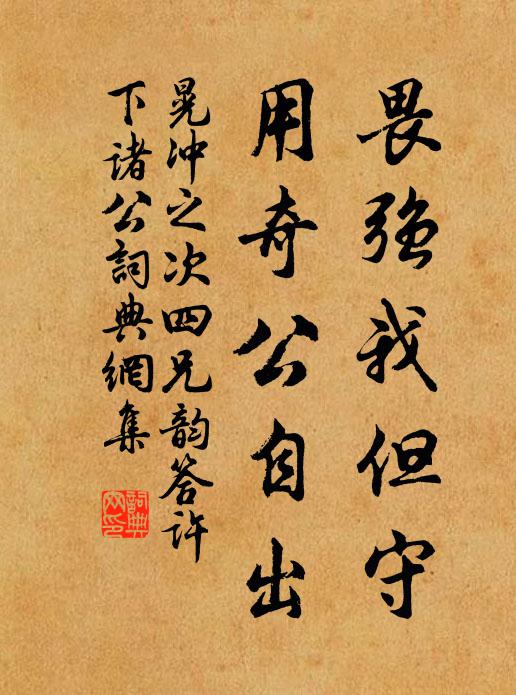 畏強我但守
用奇公自出
晁沖之次四兄韵答許
下諸公詞典網集
詞典
网印